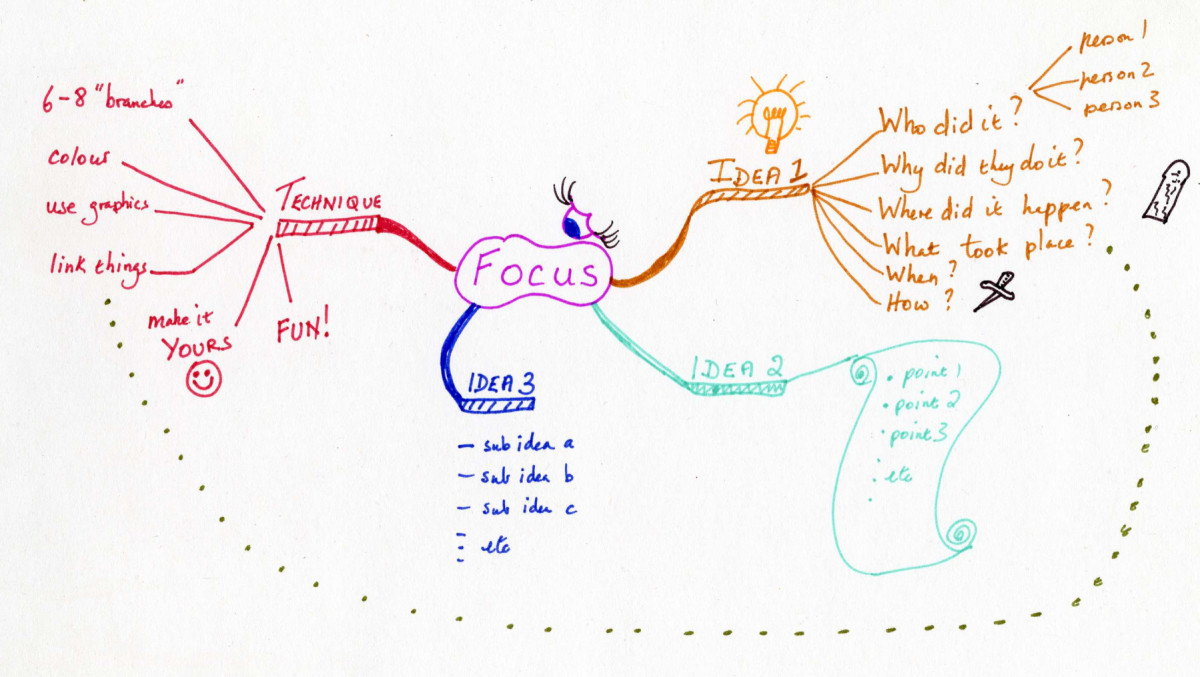 FOCUS
TECHNIQUE
6-8 "branches"
colour
use graphics
link things
make it
YOURS
FUN!
IDEA 1
Who did it?
person 1
person 2
person 3
Why did they do it?
Where did it happen?
What took place?
When?
How?
IDEA 2
• point 1
• point 2
• point 3
etc
IDEA 3
- sub idea a
- sub idea b
- sub idea c
etc